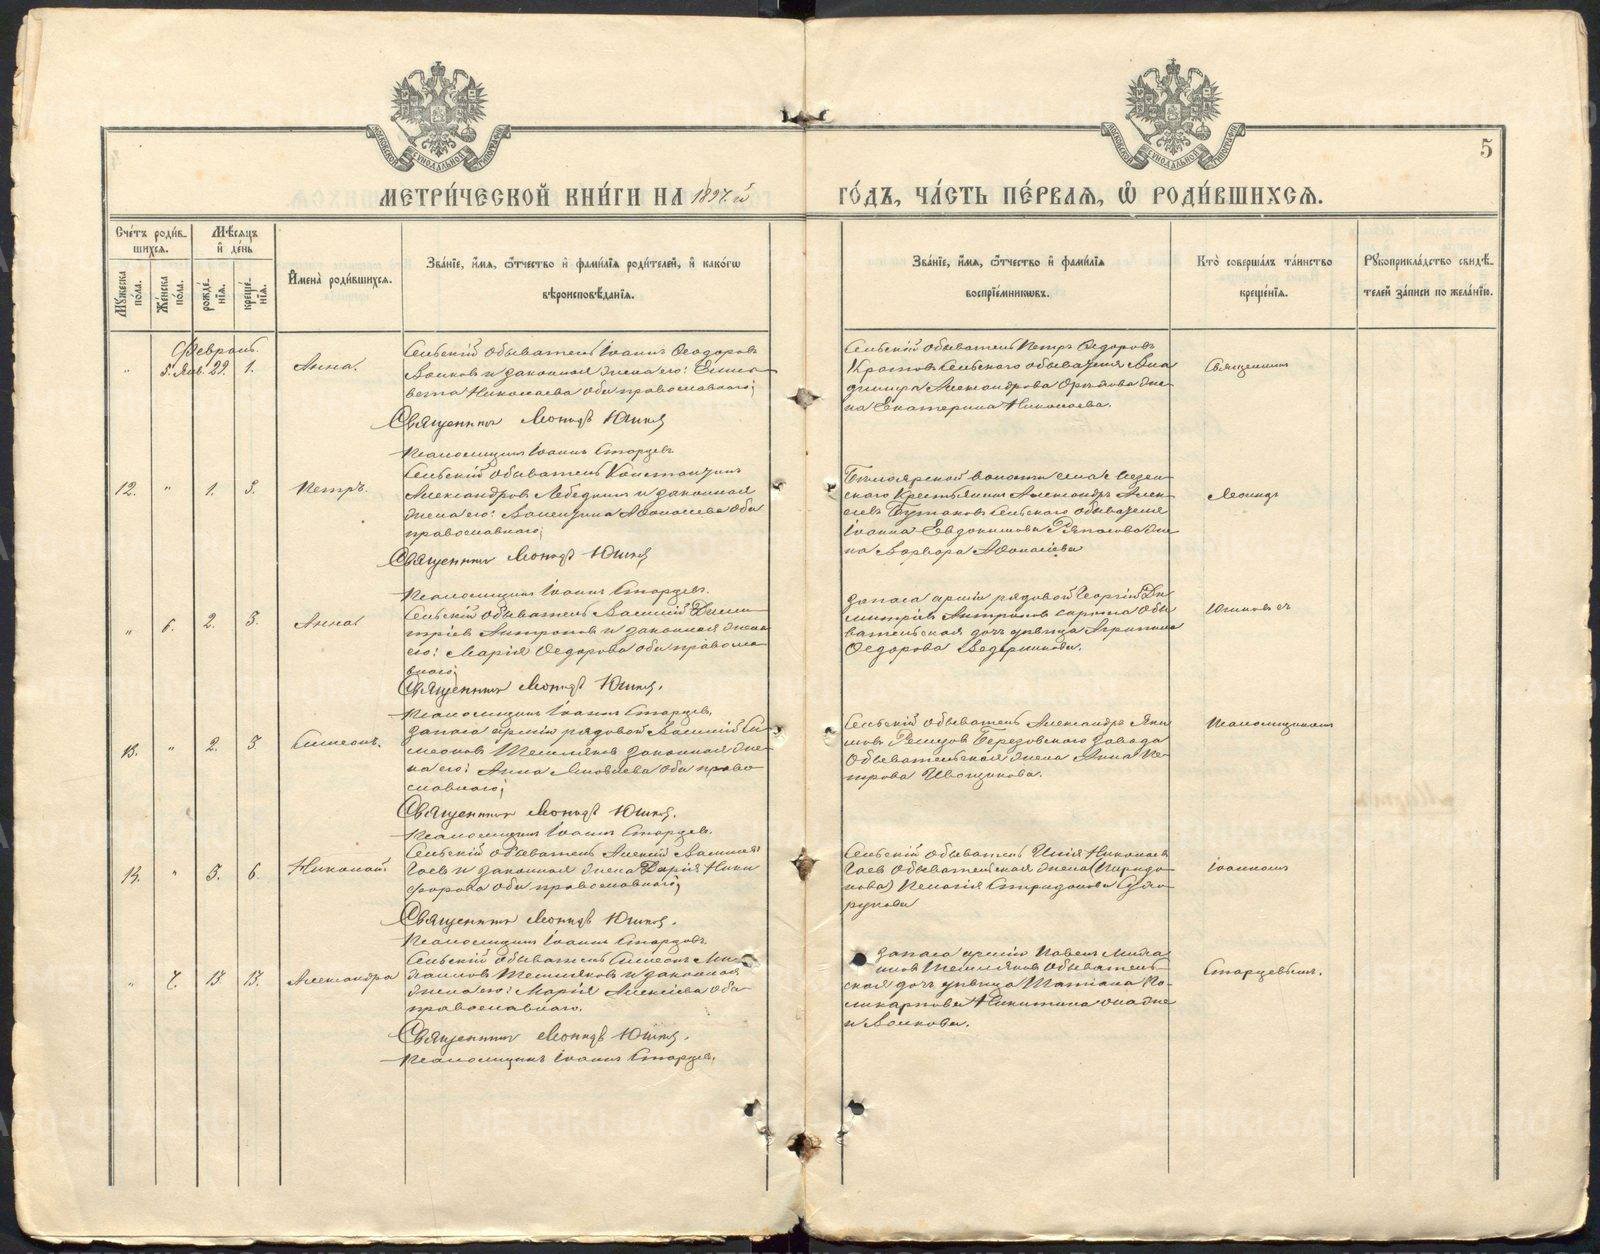 МЕТРИ́ЧЕСКОЙ КНИ́ГИ НА 1897.й ГО́ДЪ, ЧА́СТЬ ПЕ́РВАѦ, Ѡ҆ РОДИ́ВШИХСѦ.
5
Сче́тъ роди́в-
шихсѧ.
Мѣ́сѧцъ
и҆ де́нь
Мꙋ́жеска
по́ла.
Же́нска
по́ла.
рожде́-
нїѧ.
креще́-
нїѧ.
И҆мена̀ роди́вшихсѧ.
Зва́нїе, и҆́мѧ, ѻ҆́тчество и҆ фами́лїѧ роди́телей, и҆ како́гѡ
вѣроисповѣ́данїѧ.
Зва́нїе, и҆́мѧ, ѻ҆́тчество и҆ фами́лїѧ
воспрїе́мникѡвъ.
Кто̀ соверша́лъ та́инство
креще́нїѧ.
Рꙋкоприкла́дство свидѣ́-
телей за́писи по жела́нїю.
Февраль.
" 5. Янв. 29. 1. Анна.
Сельскій обыватель Іоаннъ Ѳеодоровъ
Волковъ и законная жена его: Елиса-
вета Николаева оба православнаго;
Священникъ Леонидъ Юшковъ
Псаломщикъ Іоаннъ Старцевъ
Сельскій обыватель Петръ Ѳедоровъ
Кротовъ сельскаго обывателя Вла-
диміра Александрова Орлова же-
на Екатерина Николаева.
Священникъ
12. " 1. 3. Петръ.
Сельскій обыватель Константинъ
Александровъ Лебедкинъ и законная
жена его: Валентина Аѳонасьева оба
православнаго;
Священникъ Леонидъ Юшковъ
Псаломщикъ Іоаннъ Старцевъ.
волости села
крестьянинъ Александръ Алек-
сѣевъ Бутаковъ сельскаго обывателя
Іоанна Евдокимова же-
на Варвара Аѳонасіева
Леонидъ
" 6. 2. 3. Анна
Сельскій обыватель Василій Дими-
тріевъ Антроповъ и законная жена
его: Марія Ѳедорова оба правосла-
внаго;
Священникъ Леонидъ Юшковъ.
Псаломщикъ Іоаннъ Старцевъ.
Запаса арміи рядовой Георгій Ди-
митріевъ Антроповъ обы-
вательская дочь дѣвица Агрипина
Ѳедорова Ведерникова.
Юшковъ съ
13. " 2. 3 Симеонъ.
Запаса арміи рядовой Василій Си-
меоновъ Шемляковъ законная же-
на его: Анна Яковлева оба право-
славнаго;
Священникъ Леонидъ Юшковъ.
Псаломщикъ Іоаннъ Старцевъ.
Сельскій обыватель Александръ Яки-
мовъ Березовскаго завода
обывательская жена Анна Пе-
трова Ивощикова.
Псаломщикомъ
14. " 3. 6. Николай.
Сельскій обыватель Алексій Васильевъ
Гаевъ и законная жена Дарія Ники-
форова оба православнаго;
Священникъ Леонидъ Юшковъ.
Псаломщикъ Іоаннъ Старцовъ.
Сельскій обыватель Илія Николаевъ
Гаевъ обывательская жена
Пелагія Спиридонова
Іоанномъ
" 7. 13 13. Александра
Сельскій обыватель Симеонъ Ми-
хаиловъ Шемляковъ и законная
жена его: Марія Алексіева оба
православнаго.
Священникъ Леонидъ Юшковъ.
Псаломщикъ Іоаннъ Старцевъ.
Запаса арміи Павелъ Михаи-
ловъ Шемляковъ обыватель-
ская дочь дѣвица Татіана По-
ликарпова Никитина она же
и Волкова.
Старцевымъ.